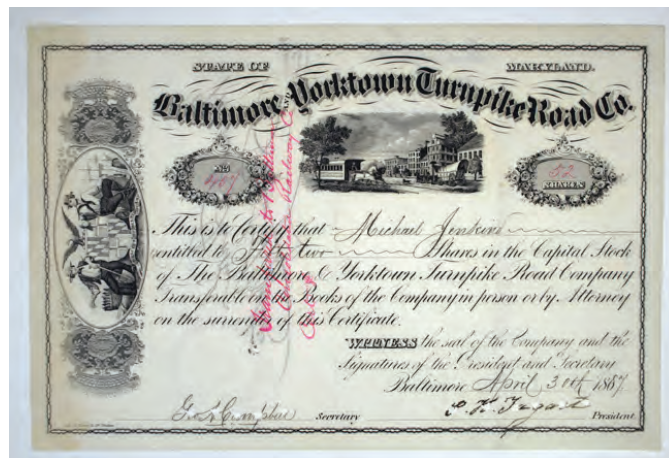 STATE OF MARYLAND.
Baltimore AND Yorktown Turnpike Road Co.
No
52
SHARES
This is to Certify that Michael Jenkins
entitled to Fifty two Shares in the Capital Stock
of The Baltimore & Yorktown Turnpike Road Company
Transferable on the Books of the Company in person or by Attorney
on the surrender of this Certificate.
WITNESS the seal of the Company and the
Signatures of the President and Secretary
Baltimore April 30th 1887
Secretary
President